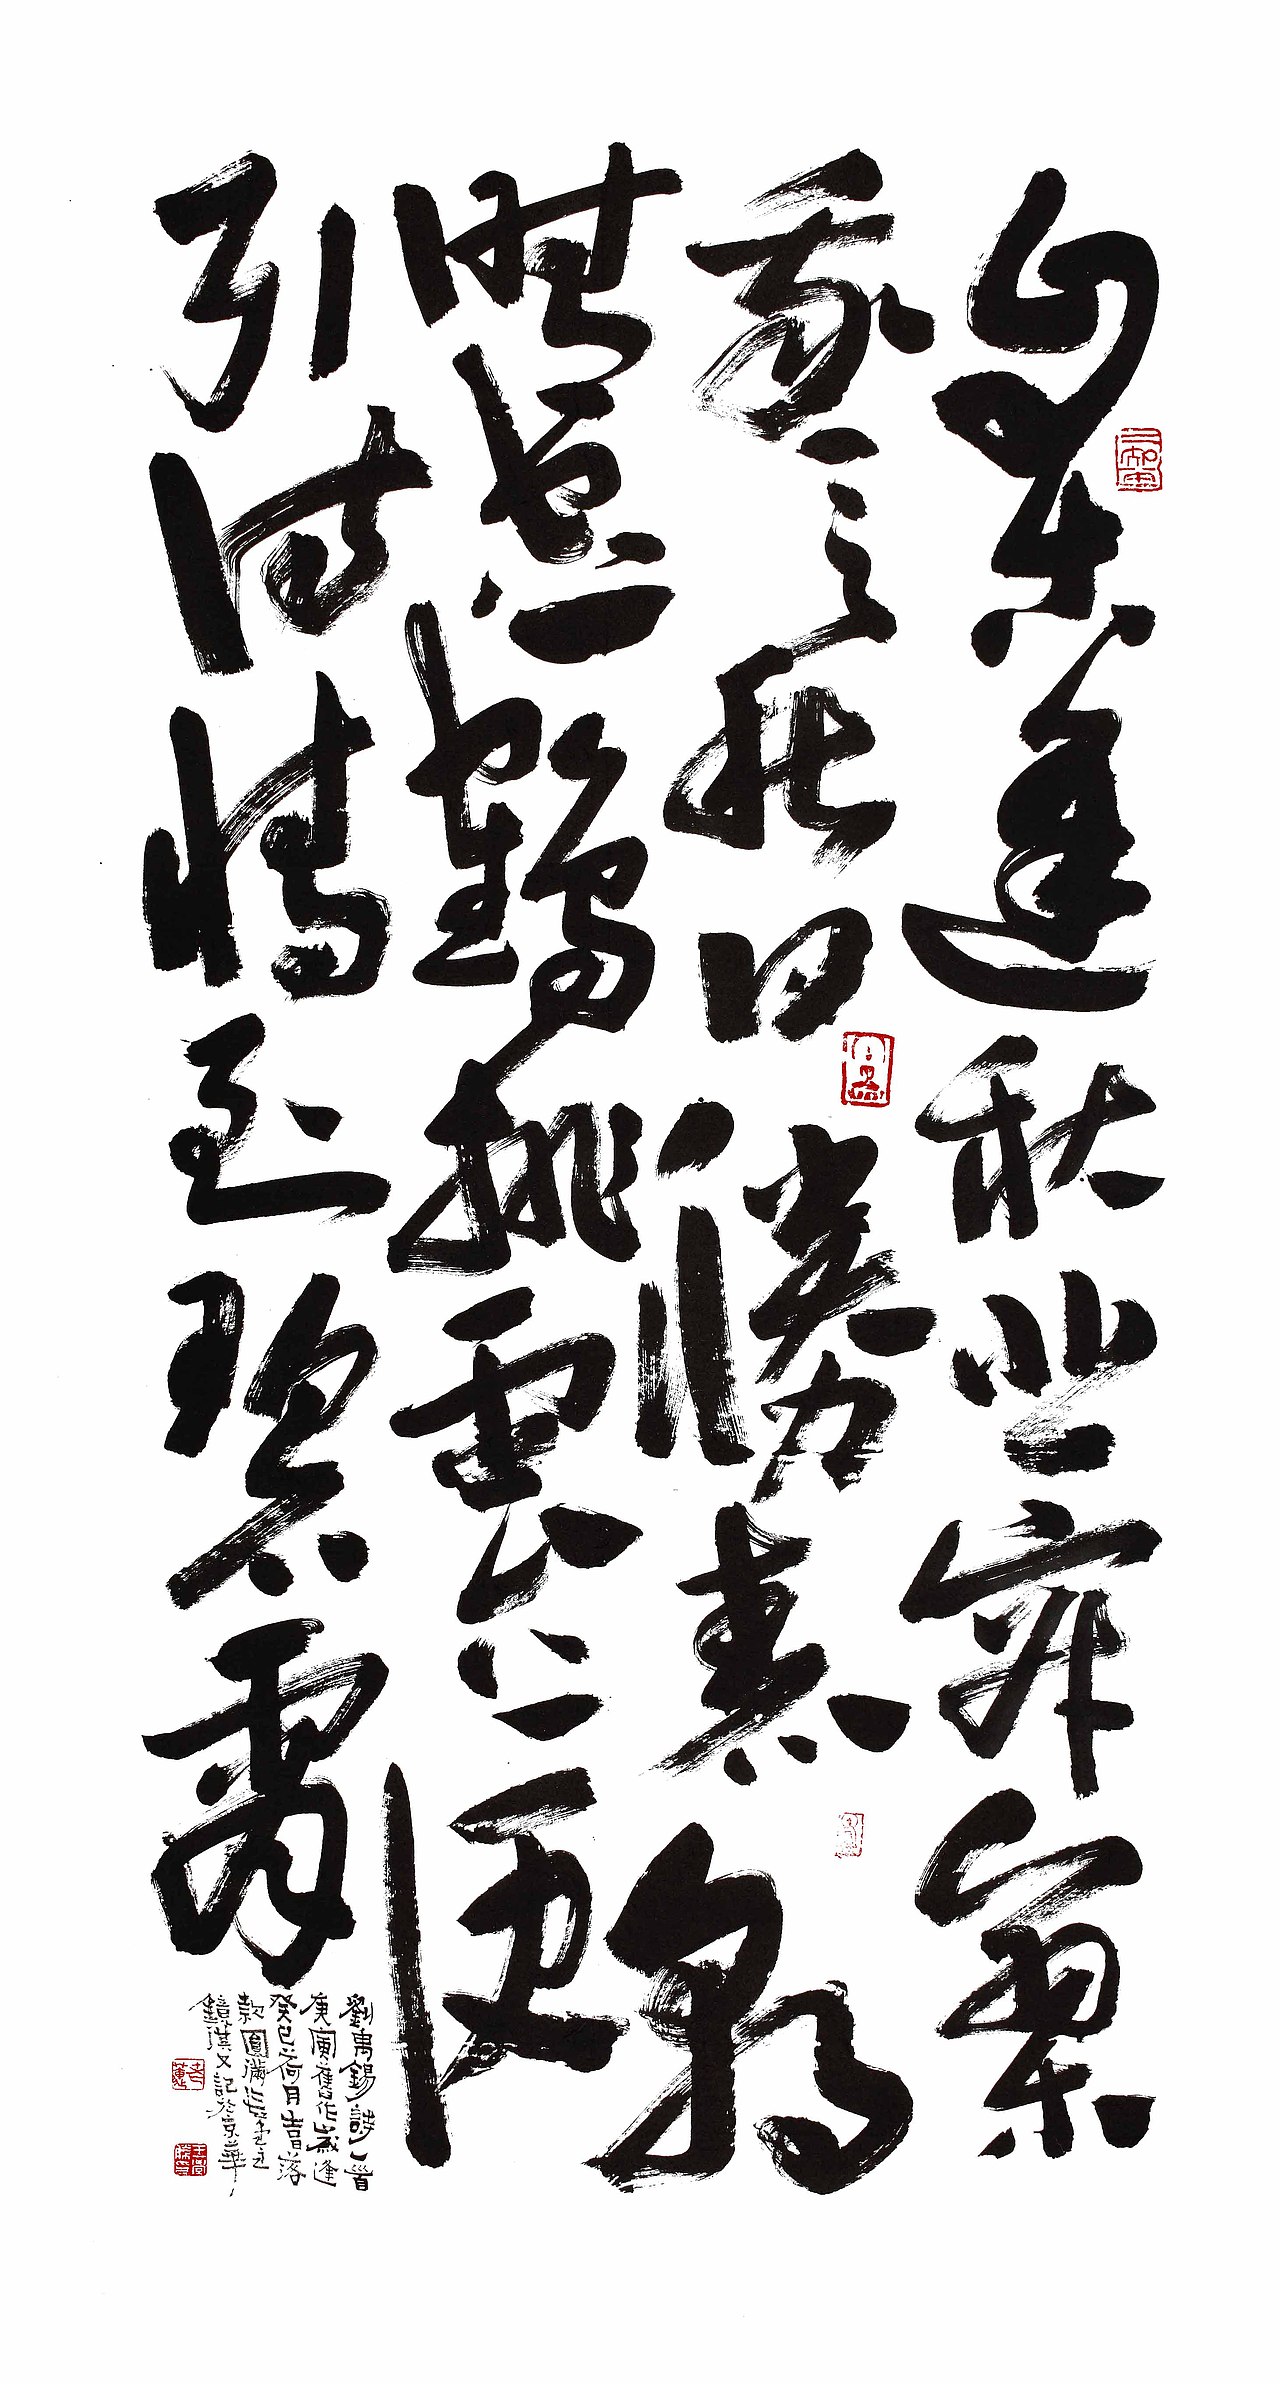 自古逢秋悲寂寥
我言秋日勝春朝
晴空一鶴排雲上便
引詩情到碧霄
劉禹錫詩一首
庚寅舊作歲逢
癸巳荷月吉日落
款圓滿堂主
又記於京華